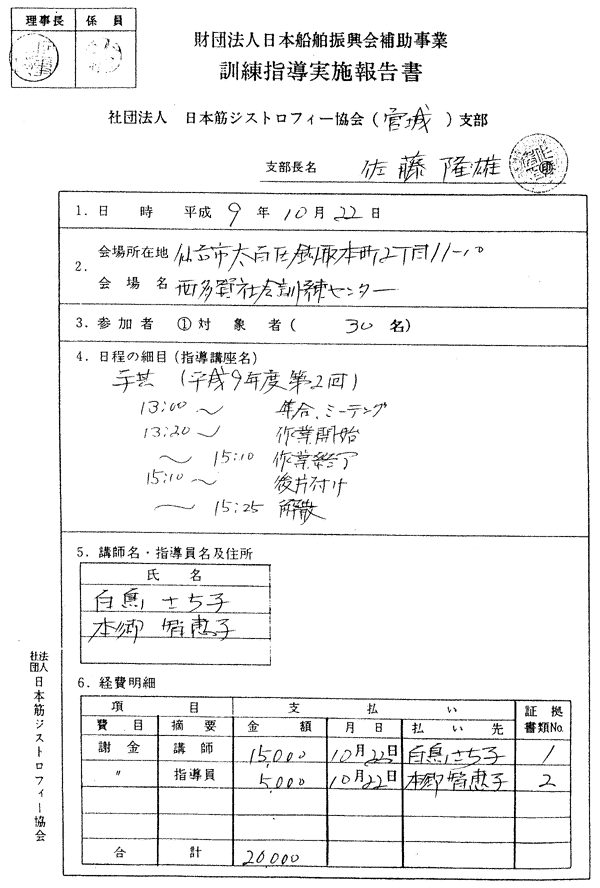 理事長 係員
財団法人日本船舶振興会補助事業
訓練指導実施報告書
社団法人 日本筋ジストロフィー協会(宮城)支部
支部長名 佐藤隆雄
1.日時 平成9年10月22日
2.会場所在地 仙台市太白区鈎取本町2丁目11-10
会場名 西多賀社会訓練センター
3.参加者 ①対象者(30名)
4.日程の細目(指導講座名)
手芸(平成9年度第2回)
13:00〜 集合、ミーティング
13:20〜 作業開始
〜15:10 作業終了
15:10〜 後片付け
〜15:25 解散
5.講師名・指導員名及住所
氏名
白鳥さち子
本郷智恵子
6.経費明細
項目 支払い 証拠書類No.
費目 摘要 金額 月日 払い先
謝金 講師 15,000 10月22日 白鳥さち子 1
〃 指導員 5,000 10月22日 本郷智恵子 2
合計 20,000
社団法人日本筋ジストロフィー協会